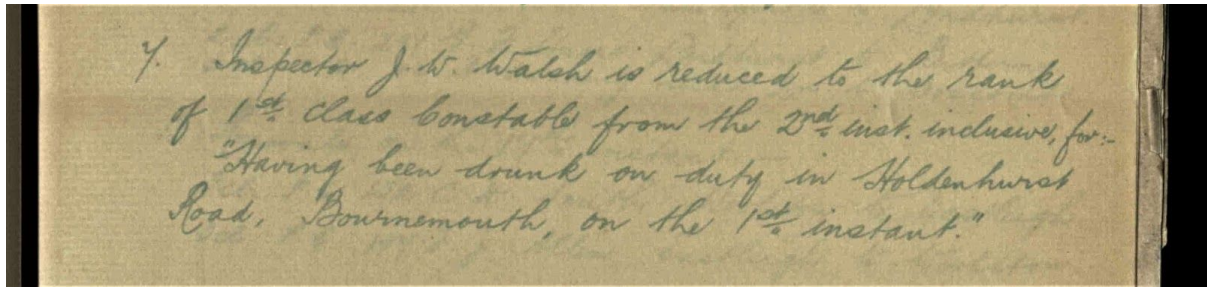 7. Inspector J. W. Walsh is reduced to the rank
of 1st. Class Constable from the 2nd. inst. inclusive, for:-
"Having been drunk on duty in Holdenhurst
Road, Bournemouth, on the 1st. instant."